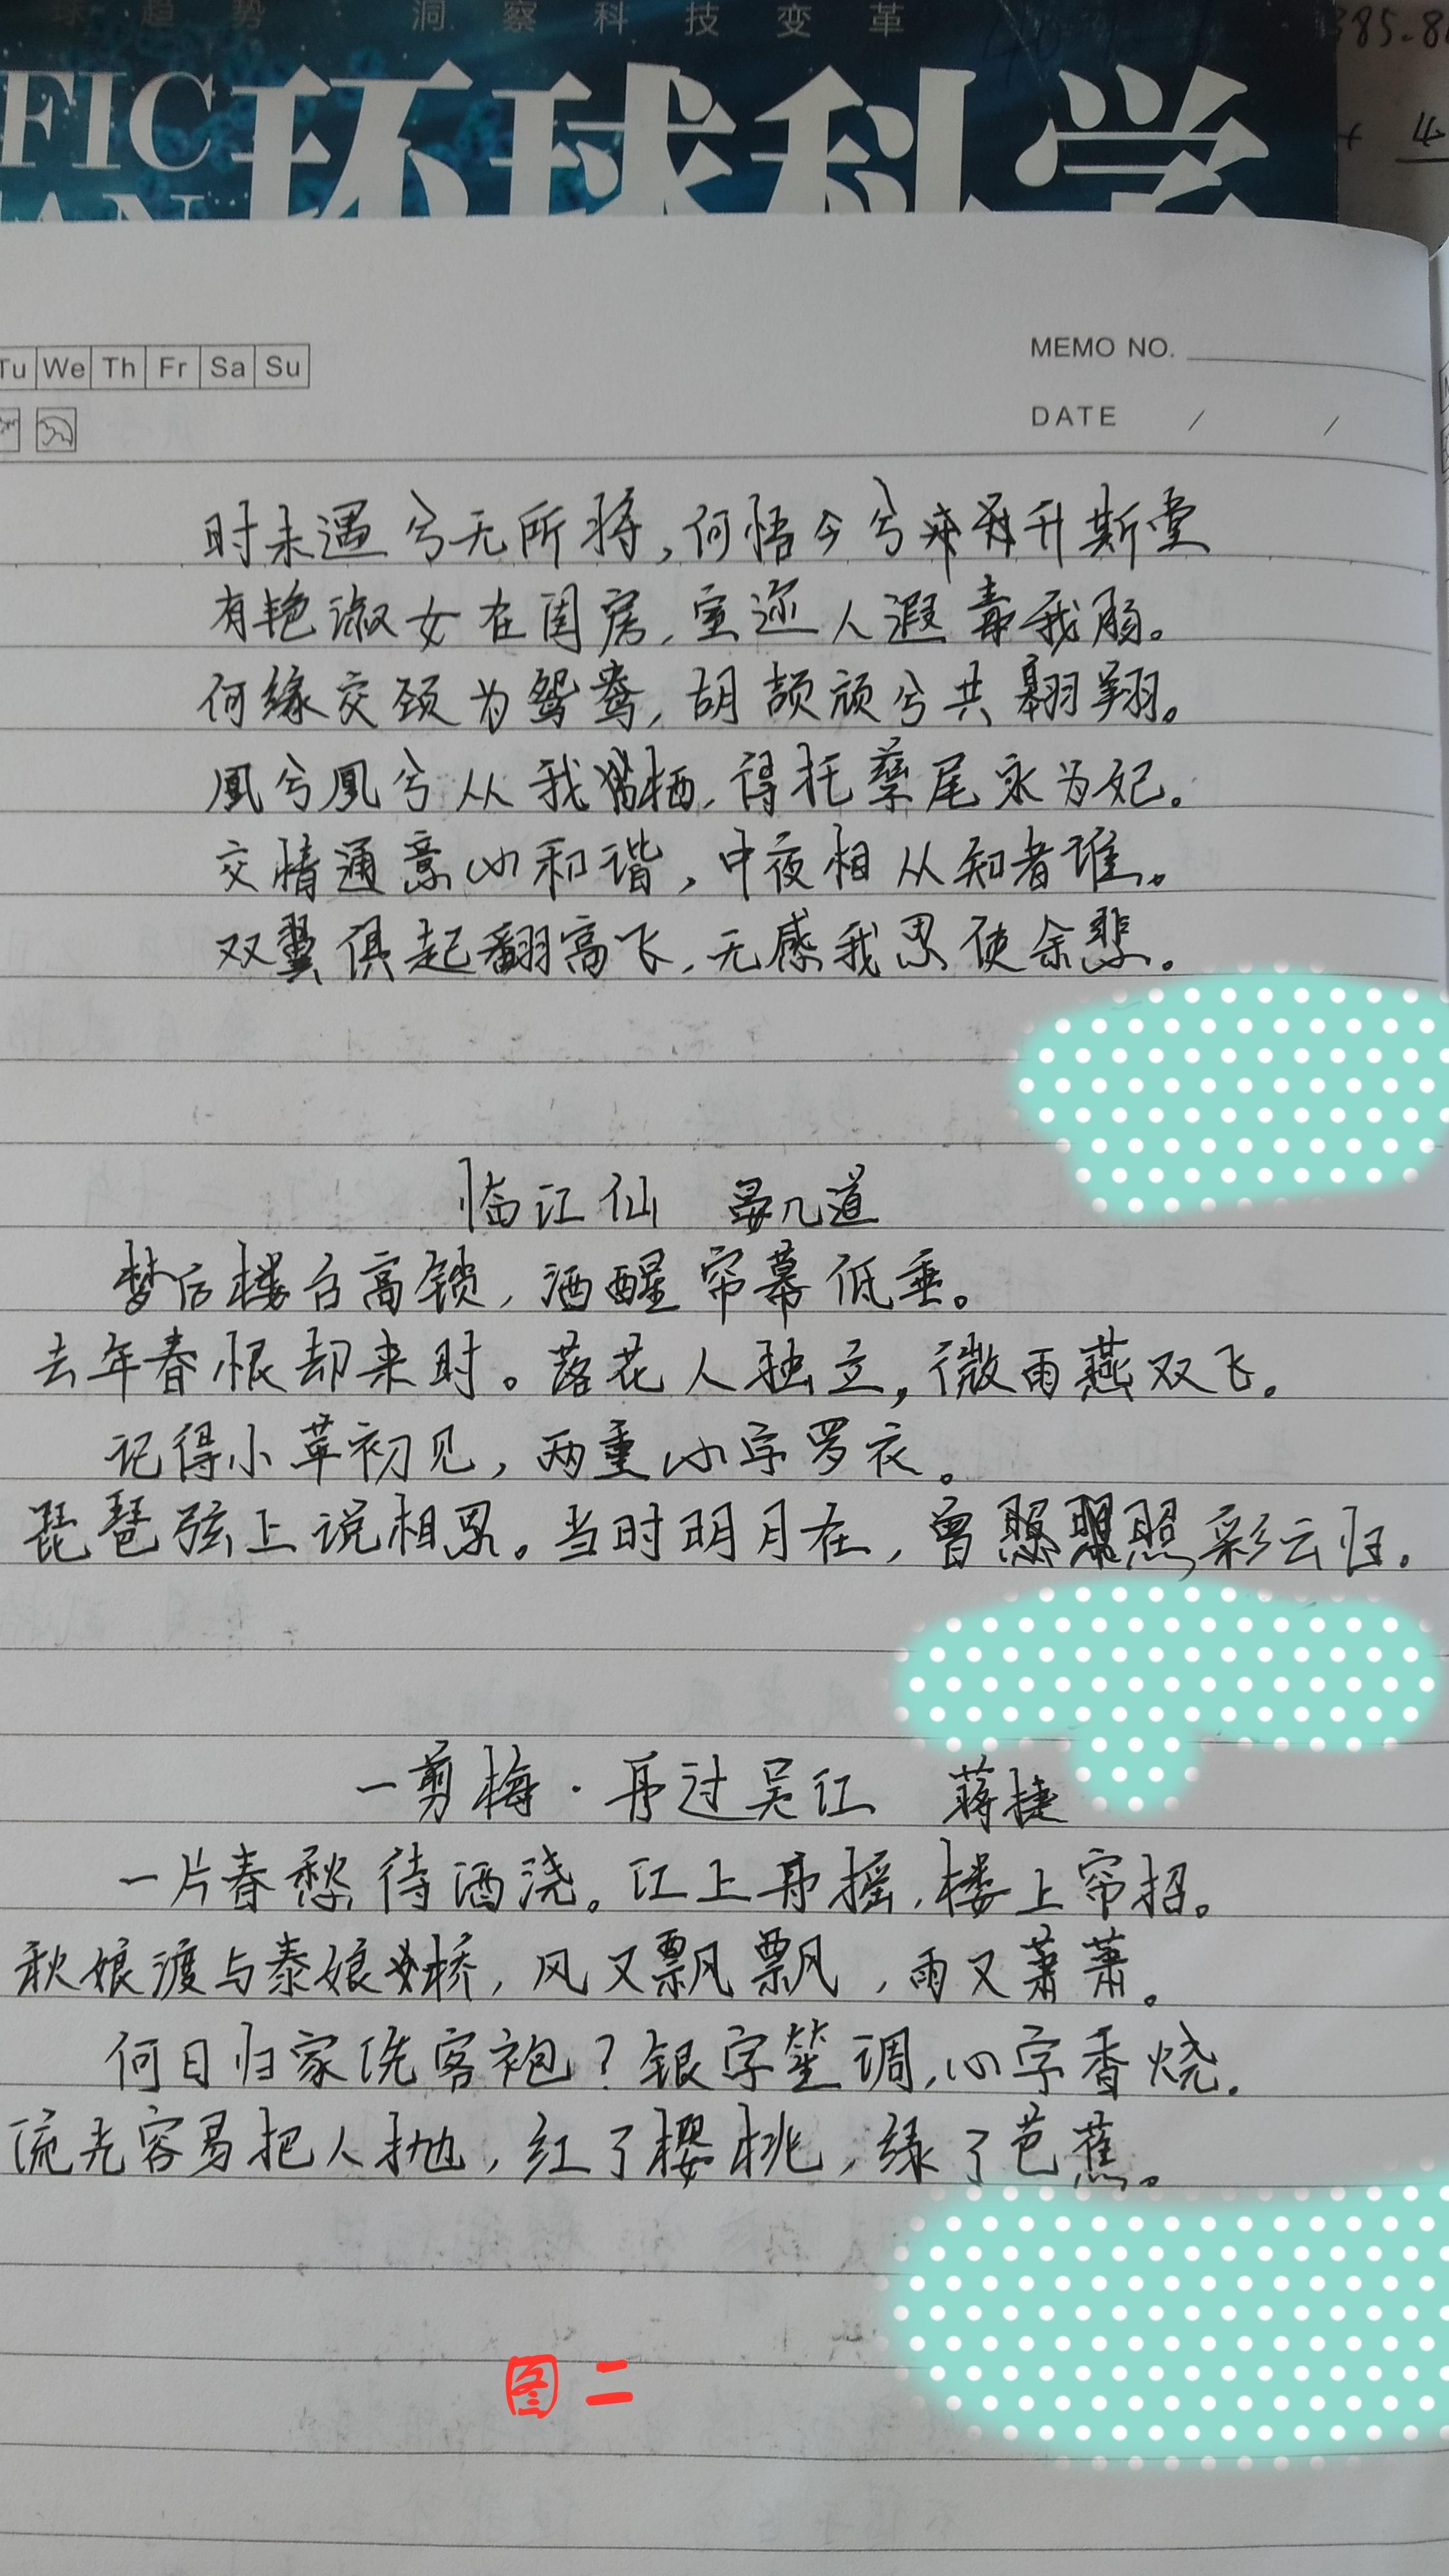 球趋势 洞察科技变革
385.8
FIC 环球科学
AN
+ 4
Tu We Th Fr Sa Su
MEMO NO.
DATE / /
时未遇兮无所将,何悟今兮升斯堂
有艳淑女在闺房,室迩人遐毒我肠。
何缘交颈为鸳鸯,胡颉颃兮共翱翔。
凰兮凰兮从我栖,得托孳尾永为妃。
交情通意心和谐,中夜相从知者谁。
双翼俱起翻高飞,无感我思使余悲。
临江仙 晏几道
梦后楼台高锁,酒醒帘幕低垂。
去年春恨却来时。落花人独立,微雨燕双飞。
记得小苹初见,两重心字罗衣。
琵琶弦上说相思。当时明月在,曾照彩云归。
一剪梅·舟过吴江 蒋捷
一片春愁待酒浇。江上舟摇,楼上帘招。
秋娘渡与泰娘桥,风又飘飘,雨又萧萧。
何日归家洗客袍?银字笙调,心字香烧。
流光容易把人抛,红了樱桃,绿了芭蕉。
图二